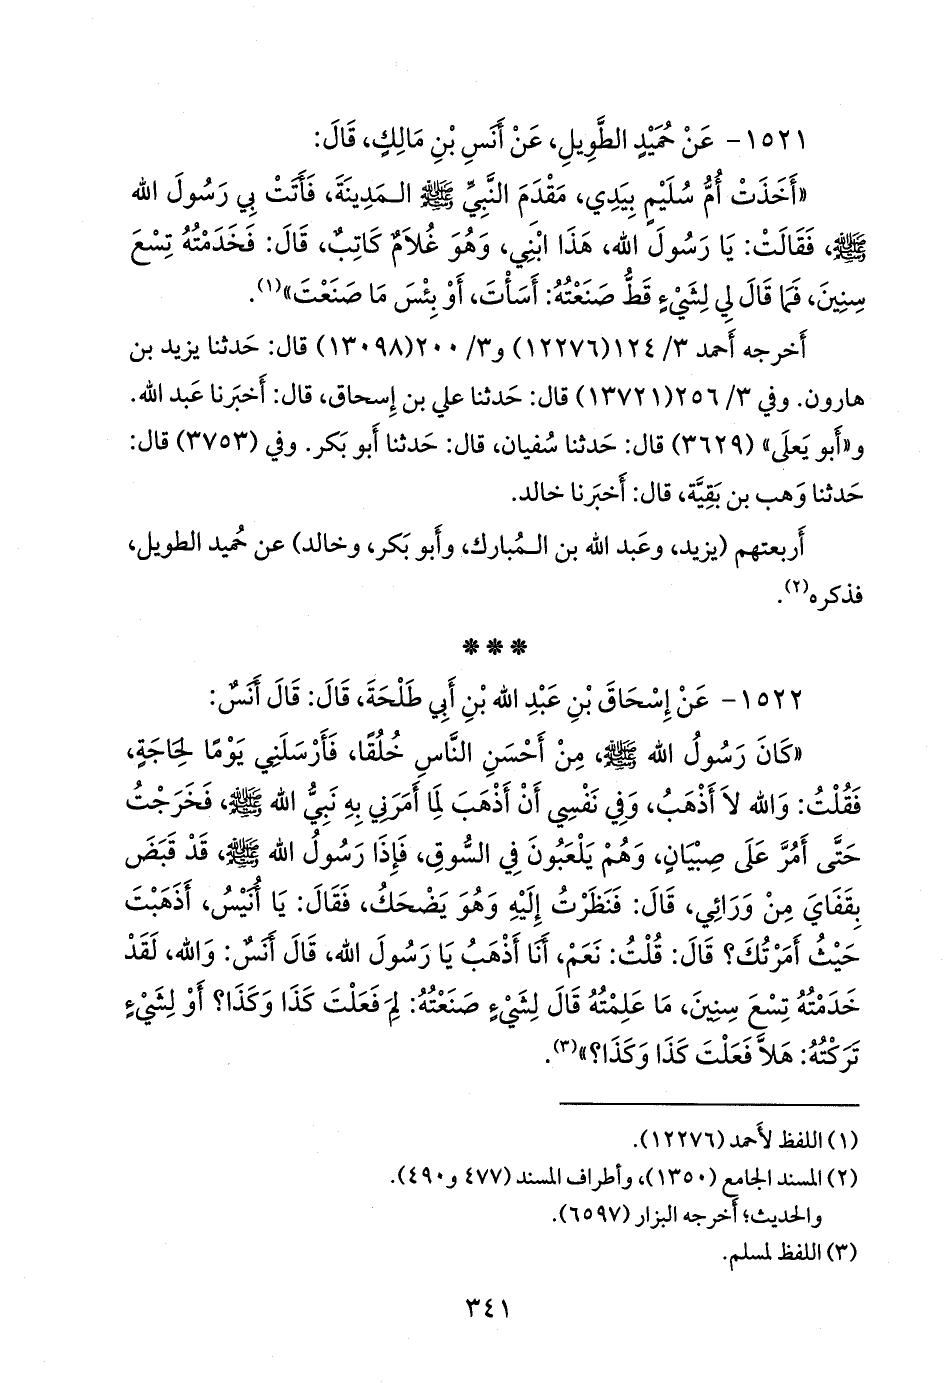 ١٥٢١- عَنْ حُمَيْدٍ الطَّوِيلِ، عَنْ أَنَسِ بْنِ مَالِكٍ، قَالَ:
«أَخَذَتْ أُمُّ سُلَيْمٍ بِيَدِي، مَقْدَمَ النَّبِيِّ ﷺ الـمَدِينَةَ، فَأَتَتْ بِي رَسُولَ الله
ﷺ، فَقَالَتْ: يَا رَسُولَ الله، هَذَا ابْنِي، وَهُوَ غُلَامٌ كَاتِبٌ، قَالَ: فَخَدَمْتُهُ تِسْعَ
سِنِينَ، فَمَا قَالَ لِي لِشَيْءٍ قَطُّ صَنَعْتُهُ: أَسَأْتَ، أَوْ بِئْسَ مَا صَنَعْتَ»(١).
أخرجه أحمد ٣/ ١٢٤(١٢٢٧٦) و٣/ ٢٠٠(١٣٠٩٨) قال: حَدثنا يزيد بن
هارون. وفي ٣/ ٢٥٦(١٣٧٢١) قال: حَدثنا علي بن إِسحاق، قال: أَخبَرنا عَبد الله.
و«أَبو يَعلَى» (٣٦٢٩) قال: حَدثنا سُفيان، قال: حَدثنا أَبو بَكر. وفي (٣٧٥٣) قال:
حَدثنا وَهب بن بَقِيَّة، قال: أَخبَرنا خالد.
أَربعتهم (يزيد، وعَبد الله بن الـمُبارك، وأَبو بَكر، وخالد) عن حُميد الطويل،
فذكره(٢).
***
١٥٢٢- عَنْ إِسْحَاقَ بْنِ عَبْدِ الله بْنِ أَبِي طَلْحَةَ، قَالَ: قَالَ أَنَسٌ:
«كَانَ رَسُولُ الله ﷺ، مِنْ أَحْسَنِ النَّاسِ خُلُقًا، فَأَرْسَلَنِي يَوْمًا لِحَاجَةٍ،
فَقُلْتُ: وَالله لاَ أَذْهَبُ، وَفِي نَفْسِي أَنْ أَذْهَبَ لِمَا أَمَرَنِي بِهِ نَبِيُّ الله ﷺ، فَخَرَجْتُ
حَتَّى أَمُرَّ عَلَى صِبْيَانٍ، وَهُمْ يَلْعَبُونَ فِي السُّوقِ، فَإِذَا رَسُولُ الله ﷺ، قَدْ قَبَضَ
بِقَفَايَ مِنْ وَرَائِي، قَالَ: فَنَظَرْتُ إِلَيْهِ وَهُوَ يَضْحَكُ، فَقَالَ: يَا أُنَيْسُ، أَذَهَبْتَ
حَيْثُ أَمَرْتُكَ؟ قَالَ: قُلْتُ: نَعَمْ، أَنَا أَذْهَبُ يَا رَسُولَ الله، قَالَ أَنَسٌ: وَالله، لَقَدْ
خَدَمْتُهُ تِسْعَ سِنِينَ، مَا عَلِمْتُهُ قَالَ لِشَيْءٍ صَنَعْتُهُ: لِمَ فَعَلْتَ كَذَا وَكَذَا؟ أَوْ لِشَيْءٍ
تَرَكْتُهُ: هَلاَّ فَعَلْتَ كَذَا وَكَذَا؟»(٣).
(١) اللفظ لأَحمد (١٢٢٧٦).
(٢) المسند الجامع (١٣٥٠)، وأطراف المسند (٤٧٧ و٤٩٠).
والحديث؛ أَخرجه البزار (٦٥٩٧).
(٣) اللفظ لمسلم.
٣٤١